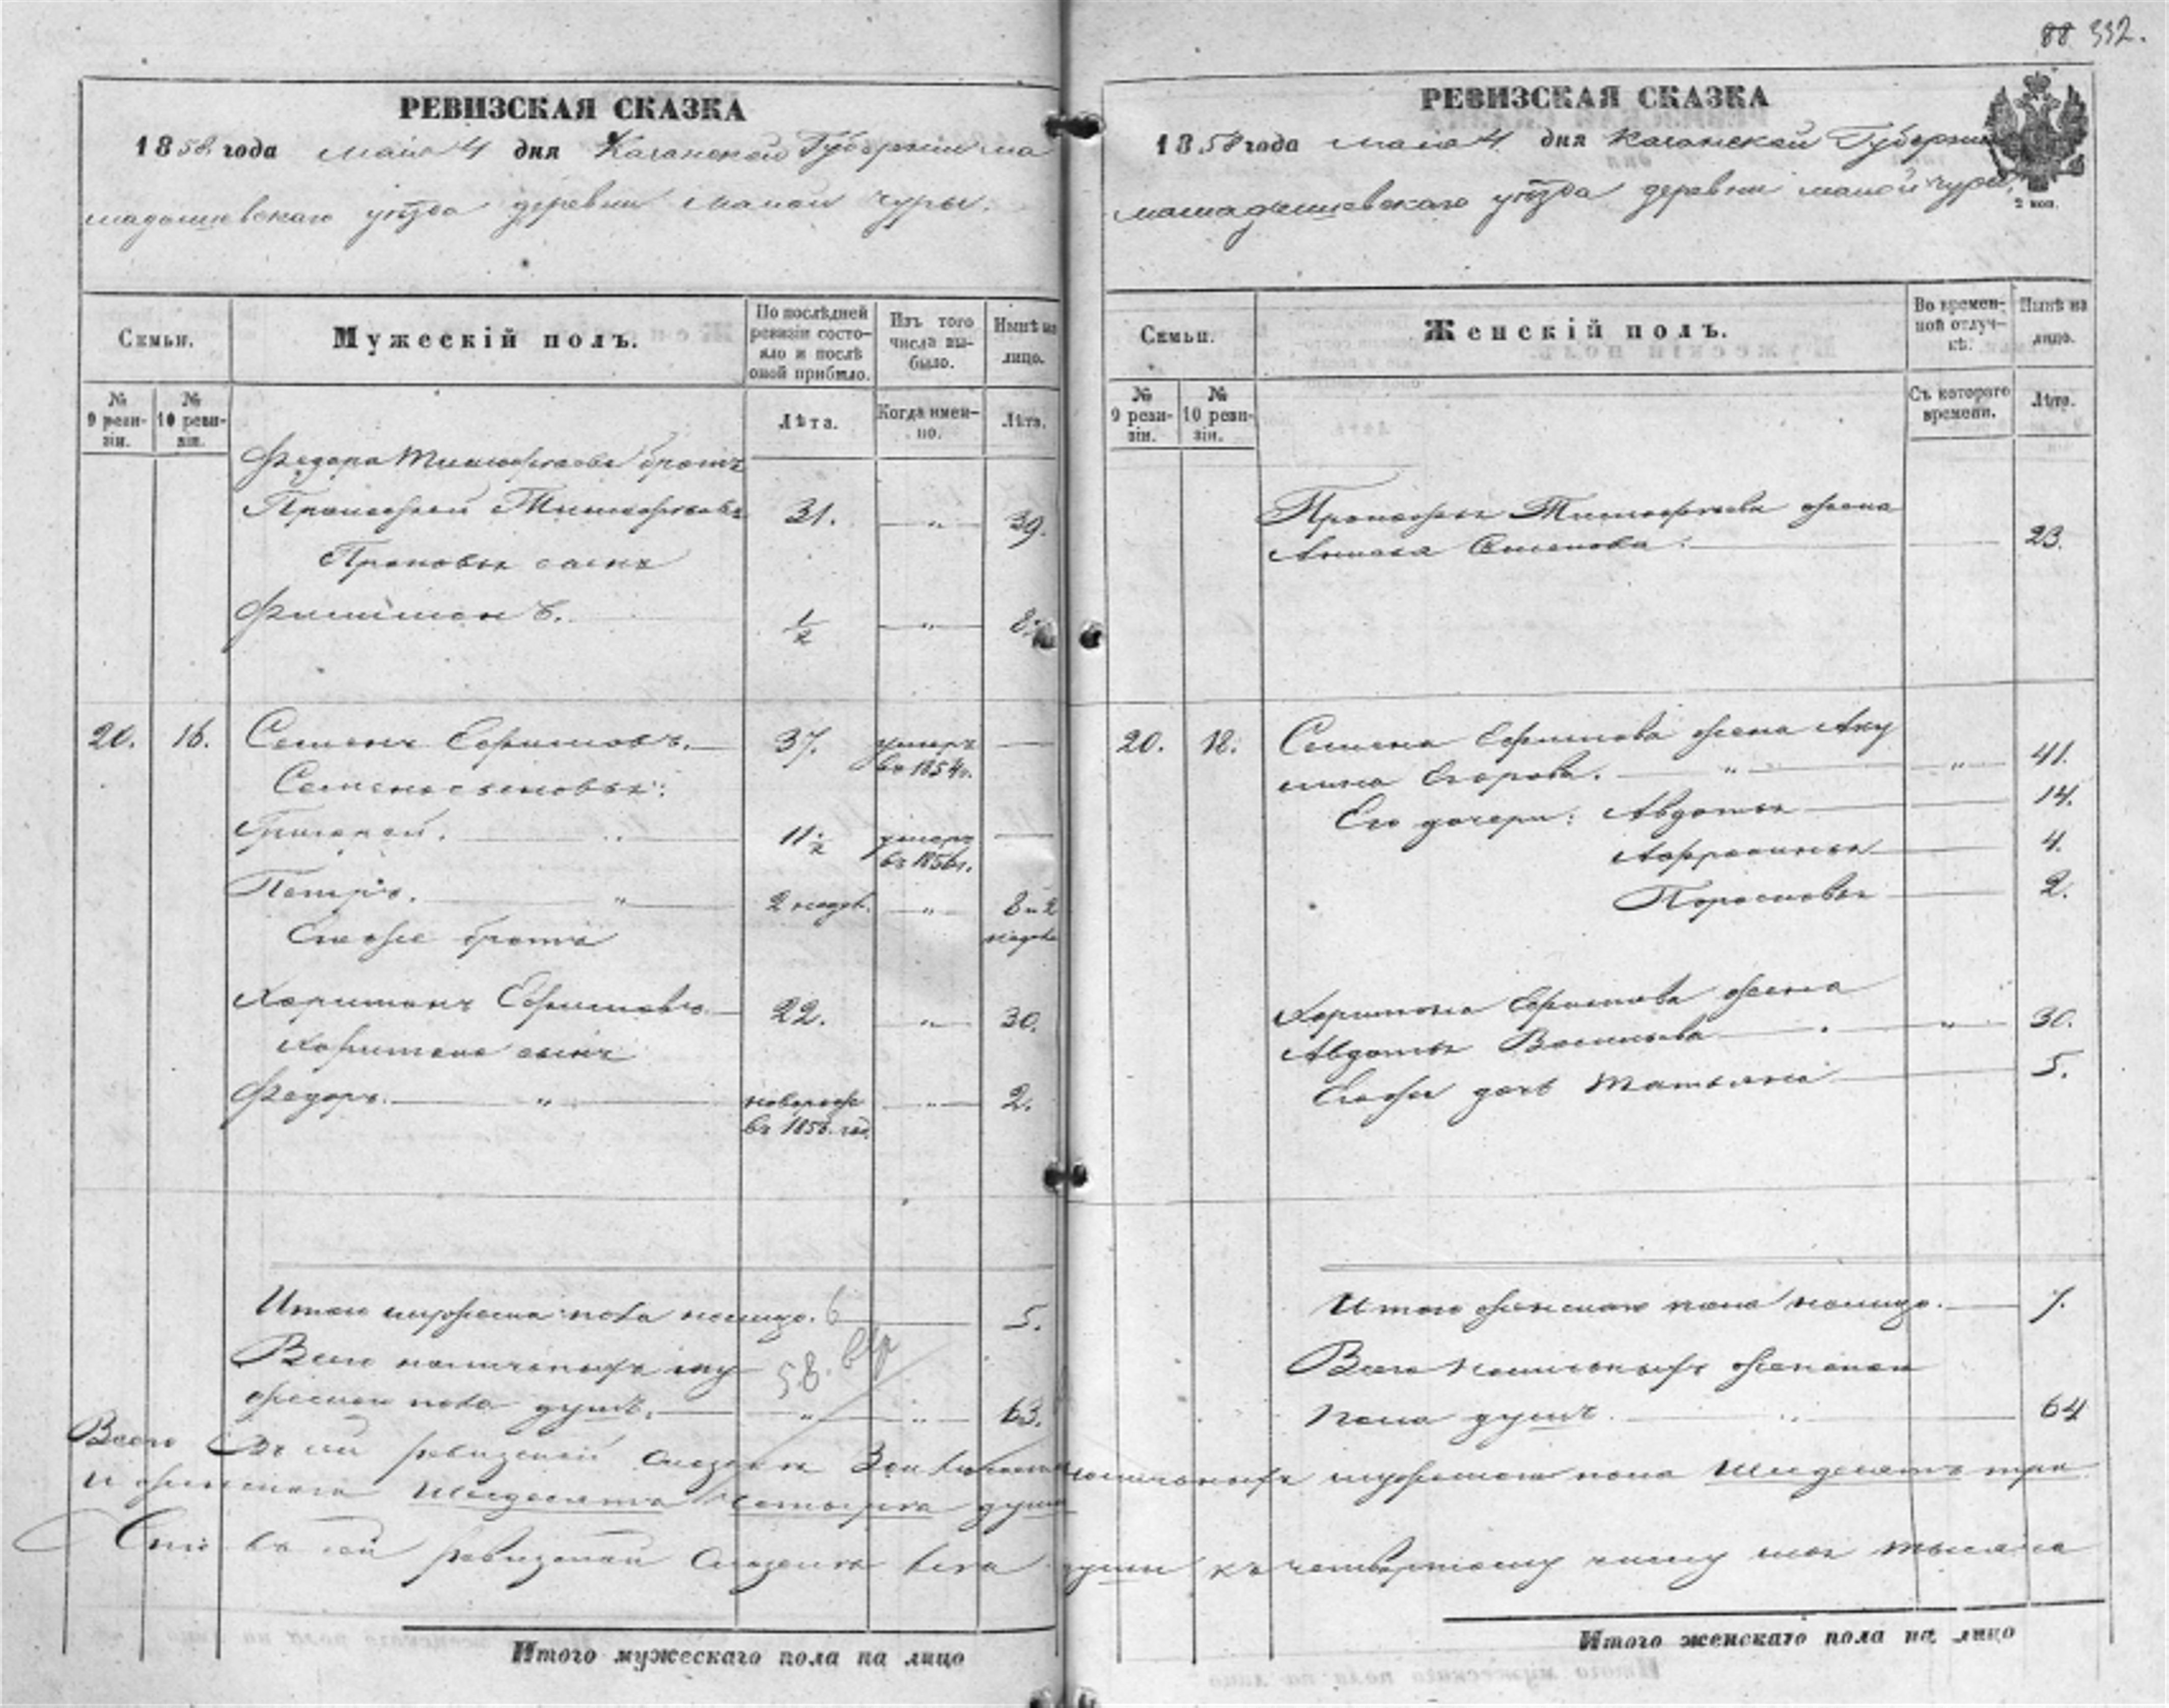 88 332.
РЕВИЗСКАЯ СКАЗКА
1858 года мая 4 дня Казанской Губернии ма
мадышевскаго уѣзда деревни малой чуры.
Семьи.
Мужескій полъ.
По послѣдней ревизіи состояло и послѣ оной прибыло.
Изъ того числа выбыло.
Нынѣ на лицо.
№ 9 ревизіи.
№ 10 ревизіи.
Лѣта.
Когда именно.
Лѣта.
Федора Тимофеева братъ
Прокофей Тимофеевъ 31. — " — 39.
сынъ
Филимонъ. 1/2 — " — 8
20. 16. Семенъ Ефимовъ. — 37. умеръ въ 1854г. —
Семена сыновья:
Григорей. 11 1/2 умеръ въ 1856г. —
Петръ. — " — 2 недѣ. — " — 8 и 2 недѣли
Его же братъ
Харитонъ Ефимовъ — 22. — " — 30.
Харитона сынъ
Федоръ. — " — новорож въ 1856. год. — " — 2.
Итого мужеска пола налицо. 6 — 5.
Всего наличныхъ му 58.
жеска пола душъ. — " — " — 63.
РЕВИЗСКАЯ СКАЗКА
1858 года мая 4 дня Казанской Губернии
мамадышевскаго уѣзда деревни малой чуры,
2 коп.
Семьи.
Женскій полъ.
Во временной отлучкѣ.
Нынѣ на лицо.
№ 9 ревизіи.
№ 10 ревизіи.
Съ котораго времени.
Лѣта.
Прокофья Тимофеева жена
Семенова — 23.
20. 18. Семена Ефимова жена Аку
лина Егорова. — " — " — 41.
Его дочери: Авдотья — 14.
Афросинья — 4.
Парасковья — 2.
Харитона Ефимова жена
Авдотья Васильева — " — 30.
Его же дочь Татьяна — 5.
Итого женскаго пола налицо. — 7.
Всего наличныхъ женскаго
пола душъ. — 64
Всего въ сей ревизской сказке наличныхъ мужескаго пола шесдесятъ три
и женскаго шесдесятъ четыре души
Что въ сей ревизской сказки все души къ четвертому числу мая тысяча
Итого мужескаго пола на лицо
Итого женскаго пола на лицо